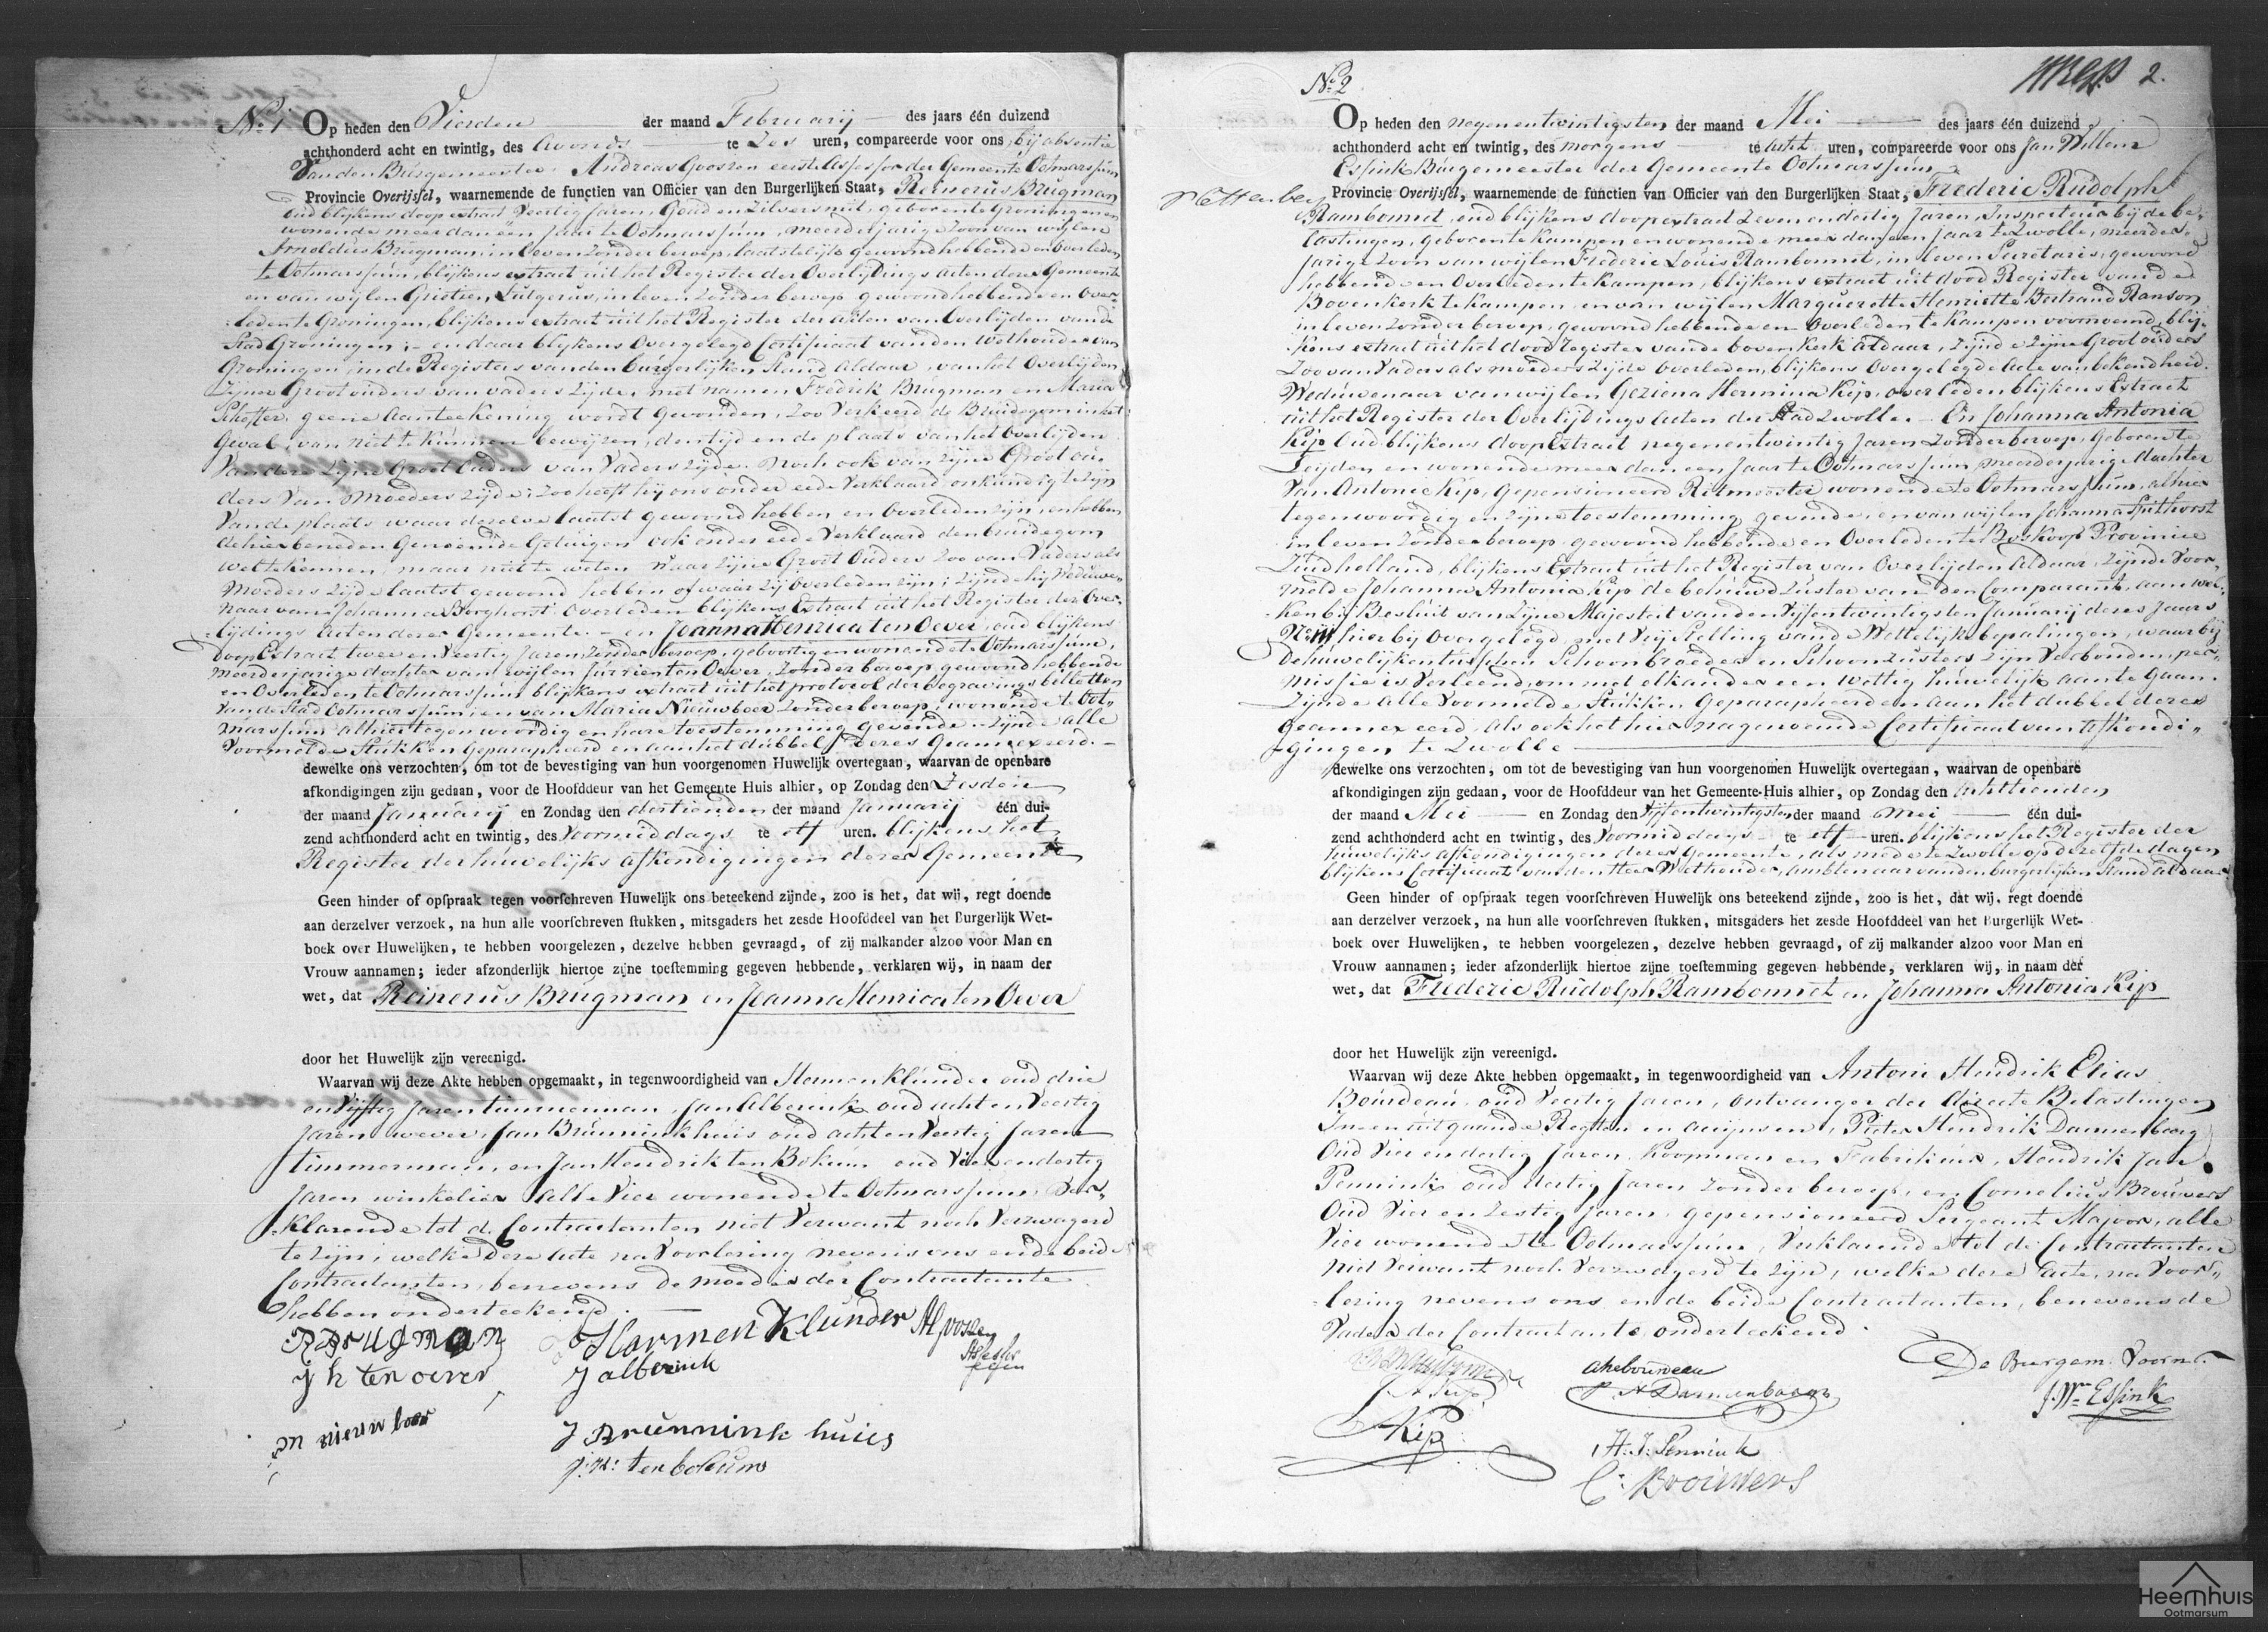 No. 1 Op heden den Vierden der maand February des jaars één duizend
achthonderd acht en twintig, des Avonds te Zes uren, compareerde voor ons, bij absentie
van den Burgemeester, Andreas Goossen eerste Assessor der Gemeente Ootmarssum
Provincie Overijssel, waarnemende de functien van Officier van den Burgerlijken Staat, Reinerus Brugman
oud blijkens doop extract Veertig Jaren, Goud en Zilversmit, geboren te Groningen en
wonende meer dan een Jaar te Ootmarssum, meerderjarige Zoon van wijlen
Arnoldus Brugman, in leven zonder beroep, laatstelijk gewoond hebbende en overleden
te Ootmarssum, blijkens extract uit het Register der Overlijdings acten dezer Gemeente
en van wijlen Grietien Lutgerus, in leven zonder beroep gewoond hebbende en over-
leden te Groningen, blijkens extract uit het Register der acten van Overlijden van de
Stad Groningen; en daar blijkens Overgelegd Certificaat van den Wethouder van
Groningen, in de Registers van den burgerlijken Stand Aldaar, van het Overlijden
Zijner Grootouders van vaders Zijde, met namen Fredrik Brugman en Maria
Scheffer, geene Aanteekening wordt gevonden, Zoo Verkeerd de Bruidegom in het
Geval, van niet te kunnen bewijzen, den tijd en de plaats van het Overlijden
van deze Zijne Groot Ouders van Vaders Zijde. Noch ook van Zijne Groot Ou-
ders Van Moeders Zijde; Zoo heeft hij ons onder eede Verklaard onkundig te Zijn
Van de plaats waar dezelve laatst gewoond hebben en Overleden Zijn, en hebben
de hier beneden Genoemde Getuigen ook onder eede Verklaard den bruidegom
wel te kennen, maar niet te weten waar Zijne Groot Ouders Zoo van Vaders als
Moeders Zijde laatst gewoond hebben of waar Zij Overleden Zijn; Zijnde hij Weduwe-
naar van Johanna Borghorst Overleden blijkens Extract uit het Register der Over-
lijdings Acten dezer Gemeente. – en Joanna Henrica ten Oever, oud blijkens
doop Extract twee en Veertig Jaren, Zonder beroep, geboortig en wonende te Ootmarssum,
meerderjarige dochter van wijlen Jurrien ten Oever, Zonder beroep gewoond hebbende
en Overleden te Ootmarssum blijkens extract uit het protocol der begravings billetten
van de Stad Ootmarssum; en van Maria Nieuwboer Zonder beroep, wonende te Oot-
marssum alhier tegenwoordig en hare toestemming gevende. Zijnde alle
Voormelde Stukken Geparapheerd en aan het dubbel dezes Geannexeerd. –
dewelke ons verzochten, om tot de bevestiging van hun voorgenomen Huwelijk overtegaan, waarvan de openbare
afkondigingen zijn gedaan, voor de Hoofddeur van het Gemeente Huis alhier, op Zondag den Zesden
der maand Januarij en Zondag den dertienden der maand Januarij één dui-
zend achthonderd acht en twintig, des Voormiddags te elf uren. blijkens het
Register der huwelijks afkondigingen dezer Gemeente
Geen hinder of opspraak tegen voorschreven Huwelijk ons beteekend zijnde, zoo is het, dat wij, regt doende
aan derzelver verzoek, na hun alle voorschreven stukken, mitsgaders het zesde Hoofddeel van het Burgerlijk Wet-
boek over Huwelijken, te hebben voorgelezen, dezelve hebben gevraagd, of zij malkander alzoo voor Man en
Vrouw aannamen; ieder afzonderlijk hiertoe zijne toestemming gegeven hebbende, verklaren wij, in naam der
wet, dat Reinerus Brugman en Joanna Henrica ten Oever
door het Huwelijk zijn vereenigd.
Waarvan wij deze Akte hebben opgemaakt, in tegenwoordigheid van Harmen Klunder oud drie
en Vijftig Jaren timmerman, Jan Alberink oud acht en Veertig
Jaren wever, Jan Brunninkhuis oud acht en Veertig Jaren
timmerman, en Jan Hendrik ten Bokum oud Vier en dertig
Jaren winkelier, Alle Vier wonende te Ootmarssum, Ver-
klarende tot de Contractanten niet Verwant noch Verzwagerd
te Zijn; welke deze acte na Voorlezing nevens ons en de beide
Contractanten, benevens de Moeder der Contractante
hebben onderteekend. –
R Brugman
Harmen Klunder
A Goossen
Assessor
J h ten oever
J alberink
m nieuwboer
J Brunnink huis
J: H: ten bokum
No. 2
2.
Op heden den negenentwintigsten der maand Mei des jaars één duizend
achthonderd acht en twintig, des morgens te acht uren, compareerde voor ons Jan Willem
Essink Burgemeester der Gemeente Ootmarssum
Provincie Overijssel, waarnemende de functien van Officier van den Burgerlijken Staat, Frederic Rudolph
Rambonnet, oud blijkens doop extract Zeven en dertig Jaren, Inspecteur bij de be-
lastingen, geboren te Kampen en wonende meer dan een Jaar te Zwolle, meerder-
jarige Zoon van wijlen Frederic Louis Rambonnet, in leven Secretaris, gewoond
hebbende en Overleden te Kampen, blijkens extract uit dood Register van de
Bovenkerk te Kampen en van wijlen Marguerette Henriette Bertrand Ranson
in leven Zonder beroep, gewoond hebbende en Overleden te Kampen voornoemd, blij-
kens extract uit het dood register van de boven Kerk Aldaar, Zijnde Zijne Grootouders
Zoo van Vaders als moeders Zijde Overleden, blijkens Overgelegde Acte van bekendheid.
Weduwenaar van wijlen Geziena Hermina Kip, overleden blijkens Extract
uit het Register der Overlijdings Acten der Stad Zwolle. – En Johanna Antonia
Kip Oud blijkens doop Extract negenentwintig Jaren Zonder beroep, Geboren te
Leijden en wonende meer dan een Jaar te Ootmarssum, meerderjarige dochter
Van Antonie Kip, gepensioneerd Ritmeester wonende te Ootmarssum, alhier
tegenwoordig en zijne toestemming gevende, en van wijlen Johanna Spithorst
in leven Zonder beroep, gewoond hebbende en Overleden te Boskoop Provincie
Zuidholland, blijkens Extract uit het Register van Overlijden Aldaar, Zijnde Voor-
melde Johanna Antonia Kip de behuwd Zuster van den Comparant, aan wel-
ken bij Besluit van Zijne Majesteit van den Vijfentwintigsten Januarij dezes Jaars
hier bij Overgelegd, met Vrij Stelling van de Wettelijke bepalingen, waarbij
de huwelijken tusschen Schoonbroeders en Schoonzusters Zijn Verboden, per-
missie is Verleend, om met elkander een Wettig huwelijk aan te Gaan.
Zijnde alle Voormelde Stukken, Geparapheerd en aan het dubbel dezes
Geannexeerd, als ook het hier nagenoemde Certificaat van Afkondi-
gingen te Zwolle
dewelke ons verzochten, om tot de bevestiging van hun voorgenomen Huwelijk overtegaan, waarvan de openbare
afkondigingen zijn gedaan, voor de Hoofddeur van het Gemeente-Huis alhier, op Zondag den Achttienden
der maand Mei en Zondag den Vijfentwintigsten der maand Mei één dui-
zend achthonderd acht en twintig, des Voormiddags te elf uren. blijkens het Register der
huwelijks afkondigingen dezer Gemeente, als mede te Zwolle op dezelfde dagen
blijkens Certificaat van den Heer Wethouder, Ambtenaar van den burgerlijken Stand Aldaar
Geen hinder of opspraak tegen voorschreven Huwelijk ons beteekend zijnde, zoo is het, dat wij, regt doende
aan derzelver verzoek, na hun alle voorschreven stukken, mitsgaders het zesde Hoofddeel van het Burgerlijk Wet-
boek over Huwelijken, te hebben voorgelezen, dezelve hebben gevraagd, of zij malkander alzoo voor Man en
Vrouw aannamen; ieder afzonderlijk hiertoe zijne toestemming gegeven hebbende, verklaren wij, in naam der
wet, dat Frederic Rudolph Rambonnet en Johanna Antonia Kip
door het Huwelijk zijn vereenigd.
Waarvan wij deze Akte hebben opgemaakt, in tegenwoordigheid van Antoni Hendrik Elias
Bourdeau, oud Veertig Jaren, Ontvanger der directe Belastingen
In- en uitgaande Regten en accijnsen, Pieter Hendrik Dannenberg
Oud Vier en dertig Jaren Koopman en Fabrikeur, Hendrik Jan
Pennink oud dertig Jaren Zonder beroep, en Cornelius Brouwers
Oud Vier en Zestig Jaren, gepensioneerd Sergeant Majoor, alle
Vier wonende te Ootmarssum, Verklarende tot de Contractanten
niet Verwant noch Verzwagerd te Zijn, welke deze Acte, na Voor-
lezing nevens ons en de beide Contractanten, benevens de
Vader der Contractante onderteekend.
ahebourdeau
De Burgem. Voorn.
J A Kip
P H Dannenberg
J. Wm Essink
A Kip
H: J: Pennink
C: Brouwers
Heemhuis
Ootmarsum